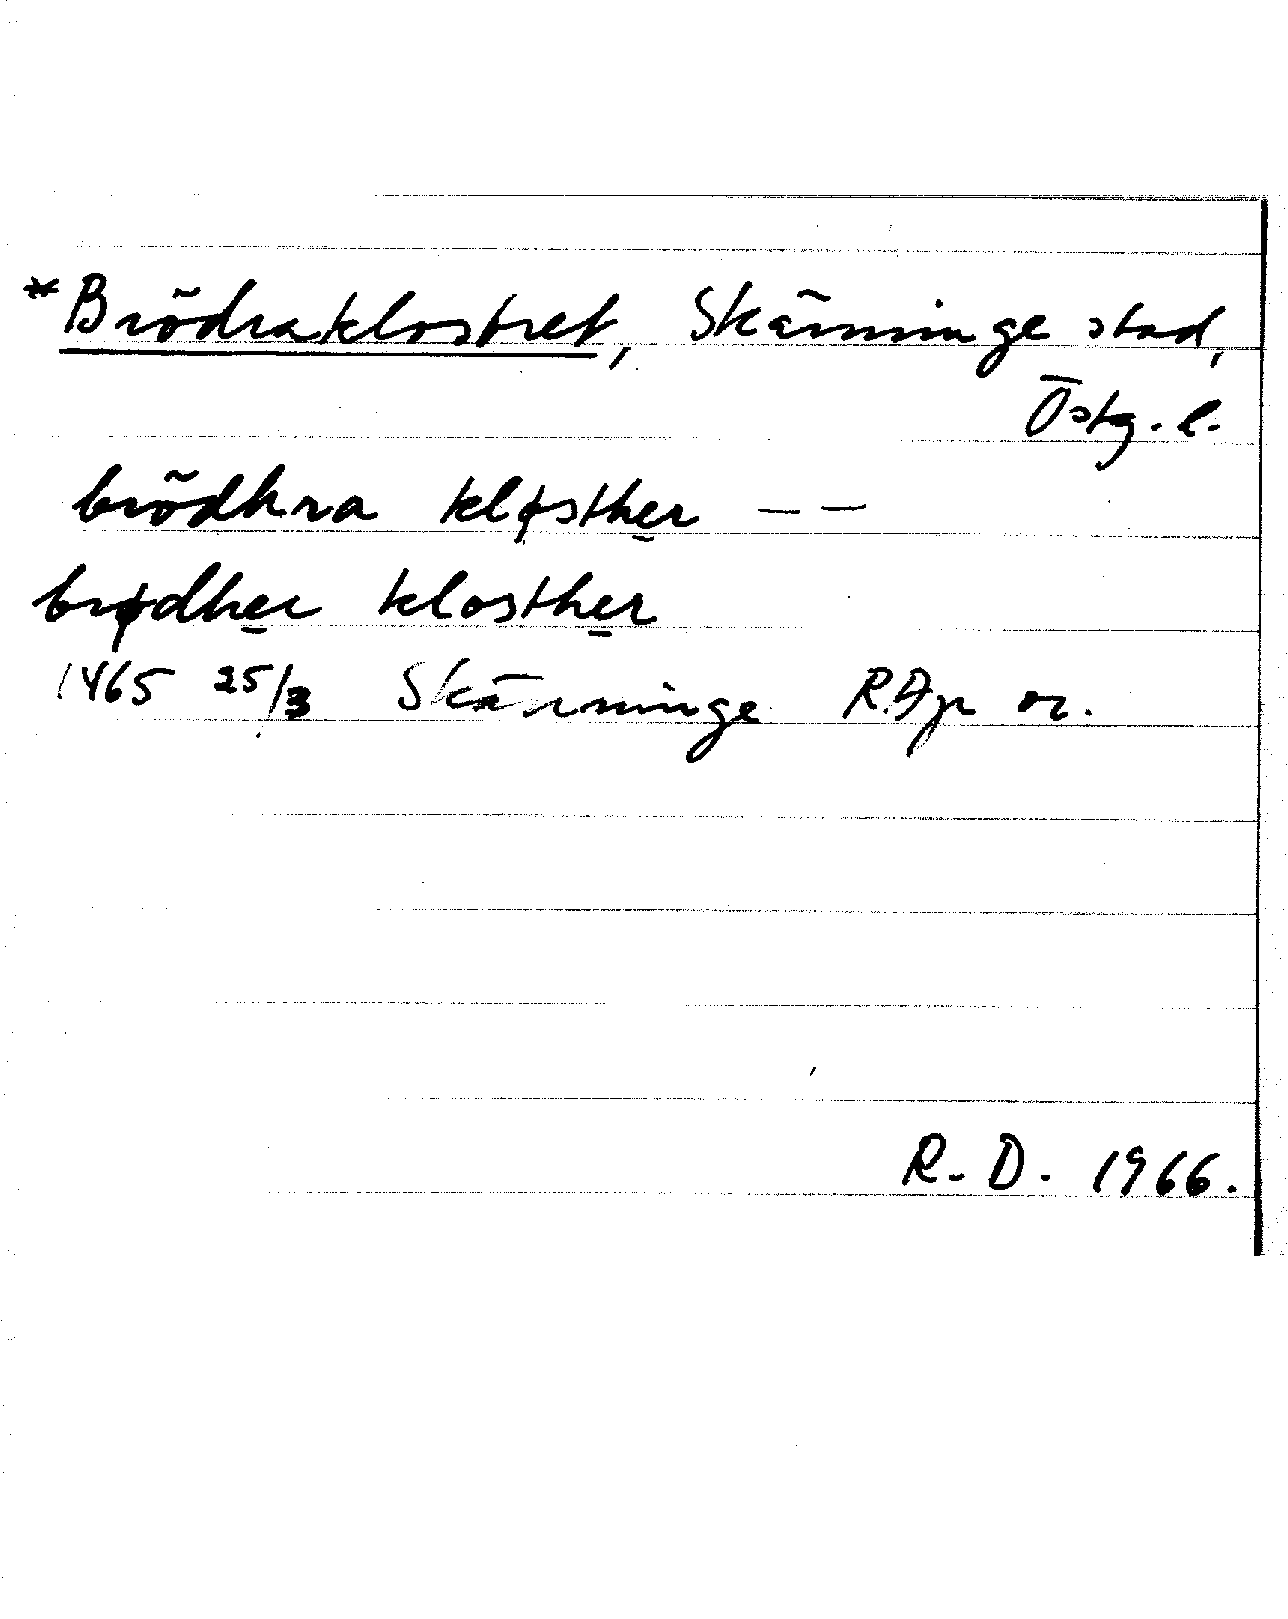 *Brödraklostret, Skänninge stad,
Östg. l.
brödhra kløsther – –
brødher klosther
1465 25/3 Skänninge RAp or.
R.D. 1966.